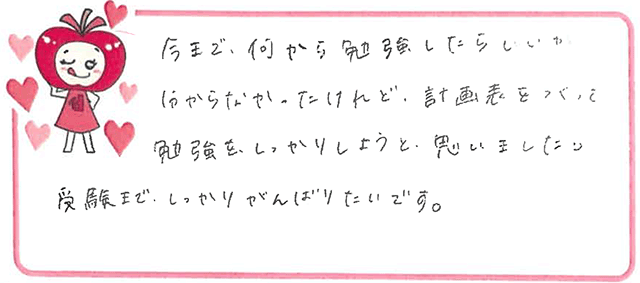 今まで、何から勉強したらいいか
分からなかったけれど、計画表をつくって
勉強を、しっかりしようと、思いました。
受験まで、しっかりがんばりたいです。